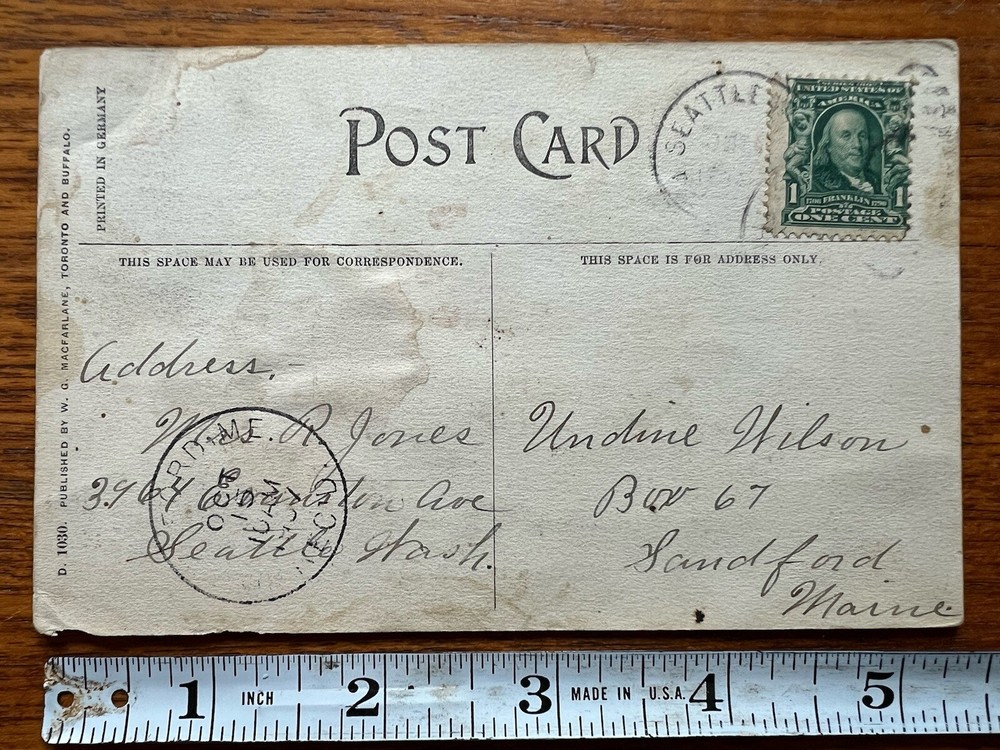 POST CARD
PRINTED IN GERMANY
D. 1030. PUBLISHED BY W. G. MACFARLANE, TORONTO AND BUFFALO.
SEATTLE
SERIES 1902
UNITED STATES OF
AMERICA
1 1
1706 FRANKLIN 1790
POSTAGE
ONE CENT
THIS SPACE MAY BE USED FOR CORRESPONDENCE.
THIS SPACE IS FOR ADDRESS ONLY.
Address.-
Mrs. R Jones
3964 Ave
Seattle Wash.
OCT
10 AM
REC'D
Undine Wilson
Box 67
Sandford
Maine
1 INCH 2 3 MADE IN U.S.A. 4 5